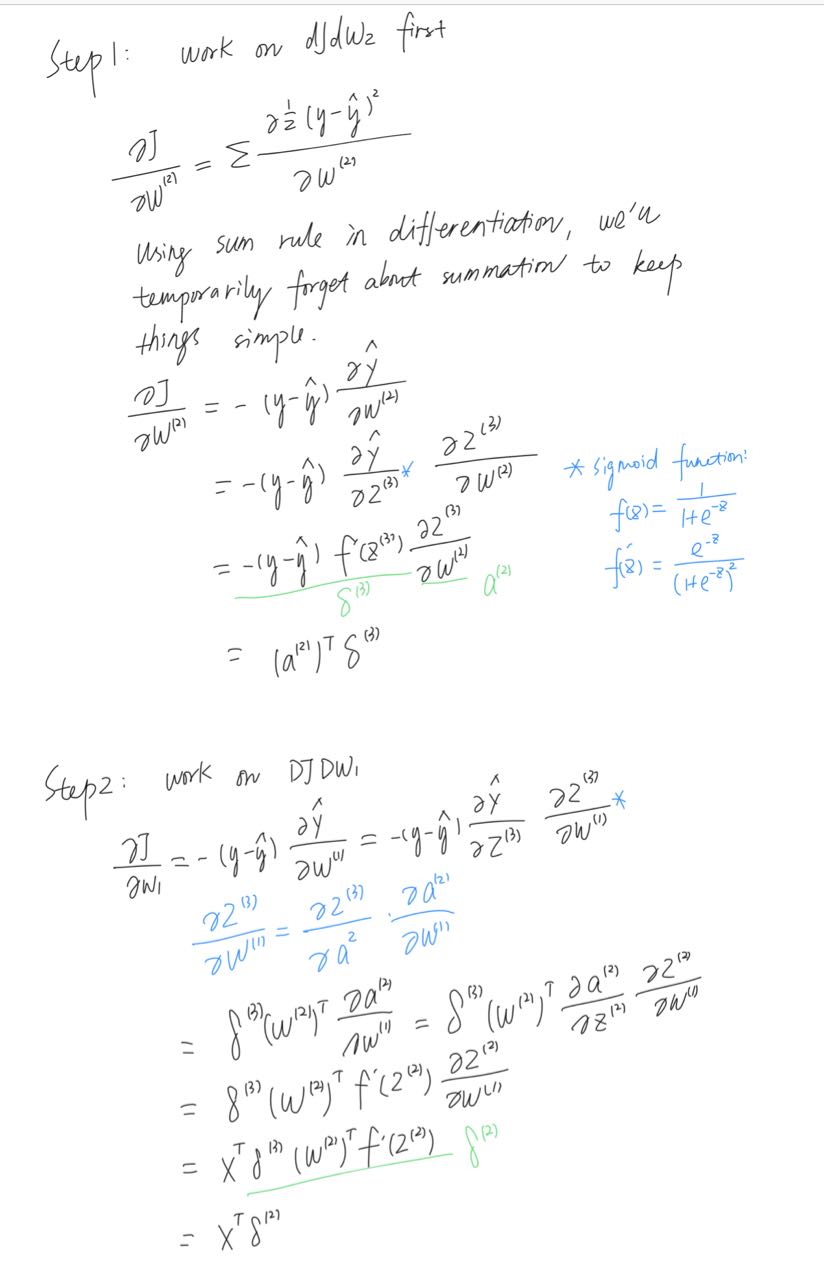 Step1: work on dJdW₂ first
∂J/∂W⁽²⁾ = Σ ∂½(y-ŷ)²/∂W⁽²⁾
Using sum rule in differentiation, we'll
temporarily forget about summation to keep
things simple.
∂J/∂W⁽²⁾ = -(y-ŷ) ∂ŷ/∂W⁽²⁾
= -(y-ŷ) ∂ŷ/∂Z⁽³⁾ * ∂Z⁽³⁾/∂W⁽²⁾
* sigmoid function:
f(z) = 1/(1+e⁻ᶻ)
f´(z) = e⁻ᶻ/(1+e⁻ᶻ)²
= -(y-ŷ) f´(z⁽³⁾) ∂Z⁽³⁾/∂W⁽²⁾
δ⁽³⁾ a⁽²⁾
= (a⁽²⁾)ᵀ δ⁽³⁾
Step2: work on DJDW₁
∂J/∂W₁ = -(y-ŷ) ∂ŷ/∂W⁽¹⁾ = -(y-ŷ) ∂ŷ/∂Z⁽³⁾ ∂Z⁽³⁾/∂W⁽¹⁾ *
∂Z⁽³⁾/∂W⁽¹⁾ = ∂Z⁽³⁾/∂a² · ∂a⁽²⁾/∂W⁽¹⁾
= δ⁽³⁾(W⁽²⁾)ᵀ ∂a⁽²⁾/∂W⁽¹⁾ = δ⁽³⁾(W⁽²⁾)ᵀ ∂a⁽²⁾/∂z⁽²⁾ ∂Z⁽²⁾/∂W⁽¹⁾
= δ⁽³⁾(W⁽²⁾)ᵀ f´(Z⁽²⁾) ∂Z⁽²⁾/∂W⁽¹⁾
= Xᵀ δ⁽³⁾ (W⁽²⁾)ᵀ f´(Z⁽²⁾) δ⁽²⁾
= Xᵀ δ⁽²⁾